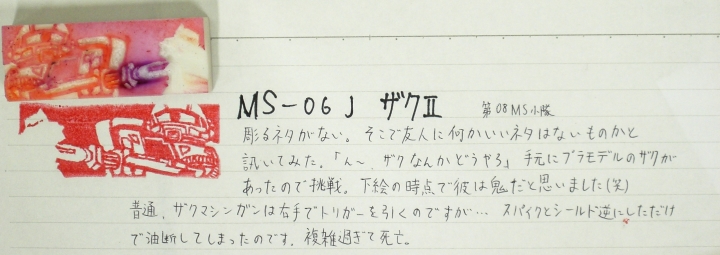 MS-06J ザクⅡ 第08MS小隊
彫るネタがない。そこで友人に何かいいネタはないものかと
訊いてみた。「ん〜、ザクなんかどうやろ」手元にプラモデルのザクが
あったので挑戦。下絵の時点で彼は鬼だと思いました(笑)
普通、ザクマシンガンは右手でトリガーを引くのですが… スパイクとシールド逆にしただけ
で油断してしまったのです。複雑過ぎて死亡。